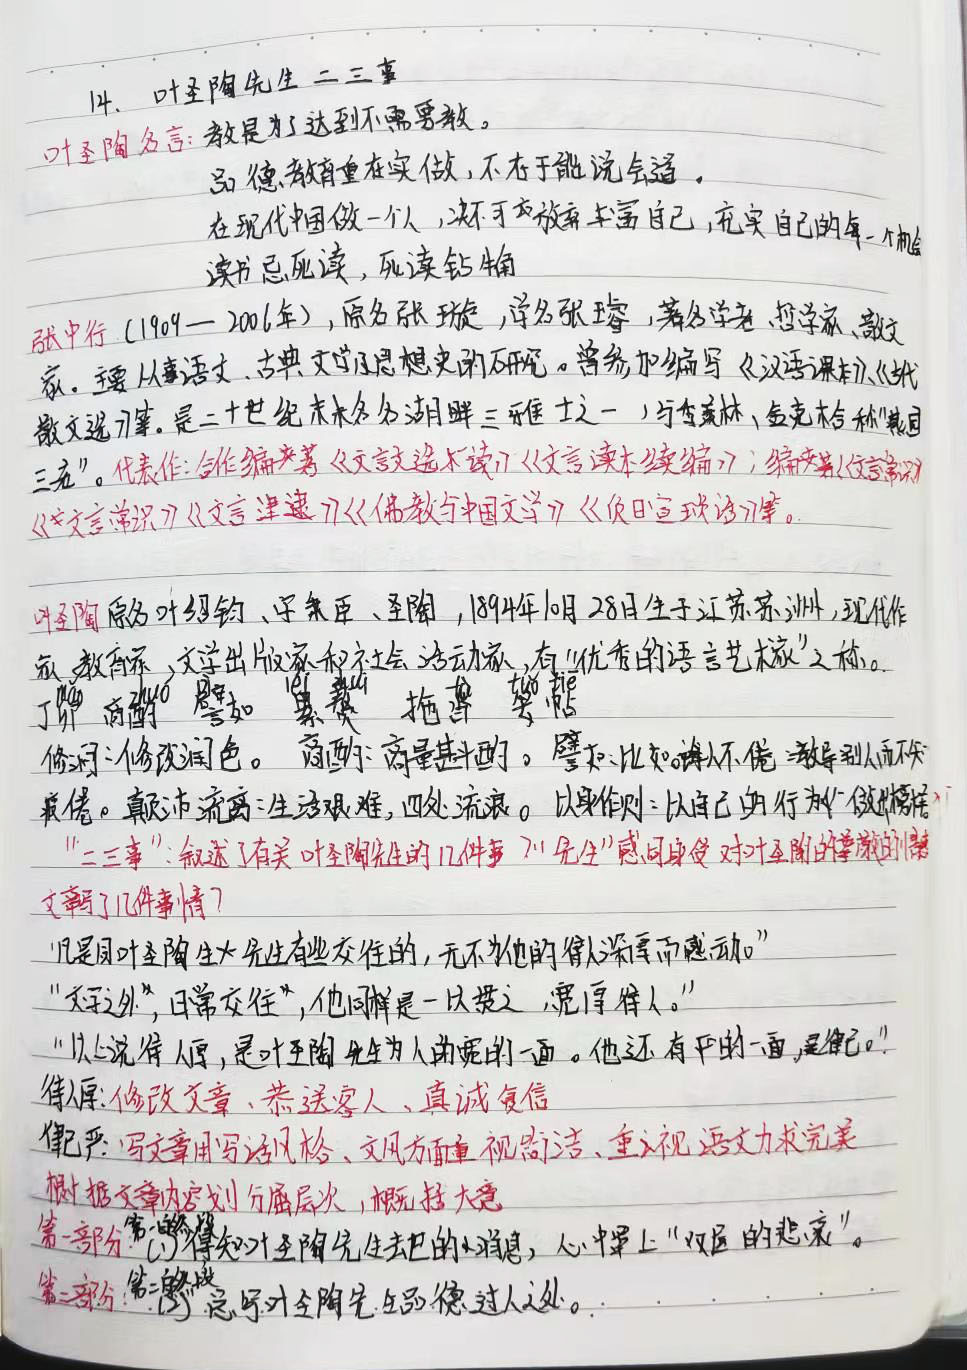 14. 叶圣陶先生二三事
叶圣陶名言: 教是为了达到不需要教。
品德教育重在实做,不在于能说会道。
在现代中国做一个人,决不可放弃丰富自己,充实自己的每一个机会
读书忌死读,死读钻牛角
张中行(1909—2006年),原名张璇,学名张璿,著名学者、哲学家、散文
家。主要从事语文、古典文学及思想史的研究。曾参加编写《汉语课本》、《古代
散文选》等。是二十世纪末未名湖畔三雅士之一,与季羡林、金克木合称"燕园
三老"。代表作:合作编著《文言文选读》《文言读本续编》;编著《文言常识》
《文言常识》《文言津逮》《佛教与中国文学》《负暄琐话》等。
叶圣陶 原名叶绍钧、字秉臣、圣陶,1894年10月28日生于江苏苏州,现代作
家、教育家、文学出版家和社会活动家,有"优秀的语言艺术家"之称。
商酌 zhuó 譬如 pì 累赘 léi zhuì 拖沓 tà 妥帖 tuǒ tiē
修润:修改润色。 商酌:商量斟酌。 譬如:比如。诲人不倦:教导别人而不知
疲倦。颠沛流离:生活艰难,四处流浪。以身作则:以自己的行为做出榜样
"二三事":叙述了有关叶圣陶先生的几件事 "先生"感同身受 对叶圣陶的尊敬的情
文章写了几件事情?
"凡是同叶圣陶先生有些交往的,无不为他的待人深厚而感动。"
"文字之外,日常交往,他同样是一以贯之,宽厚待人。"
"以上说待人厚,是叶圣陶先生为人的宽的一面。他还有严的一面,是律己。"
待人厚:修改文章、恭送客人、真诚复信
律己严:写文章用写话风格、文风方面重视简洁、重视语文力求完美
根据文章内容划分层次,概括大意
第一部分: (1) 得知叶圣陶先生去世的消息,心中罩上"双层的悲哀"。
第二部分: (2) 总写叶圣陶先生品德过人之处。